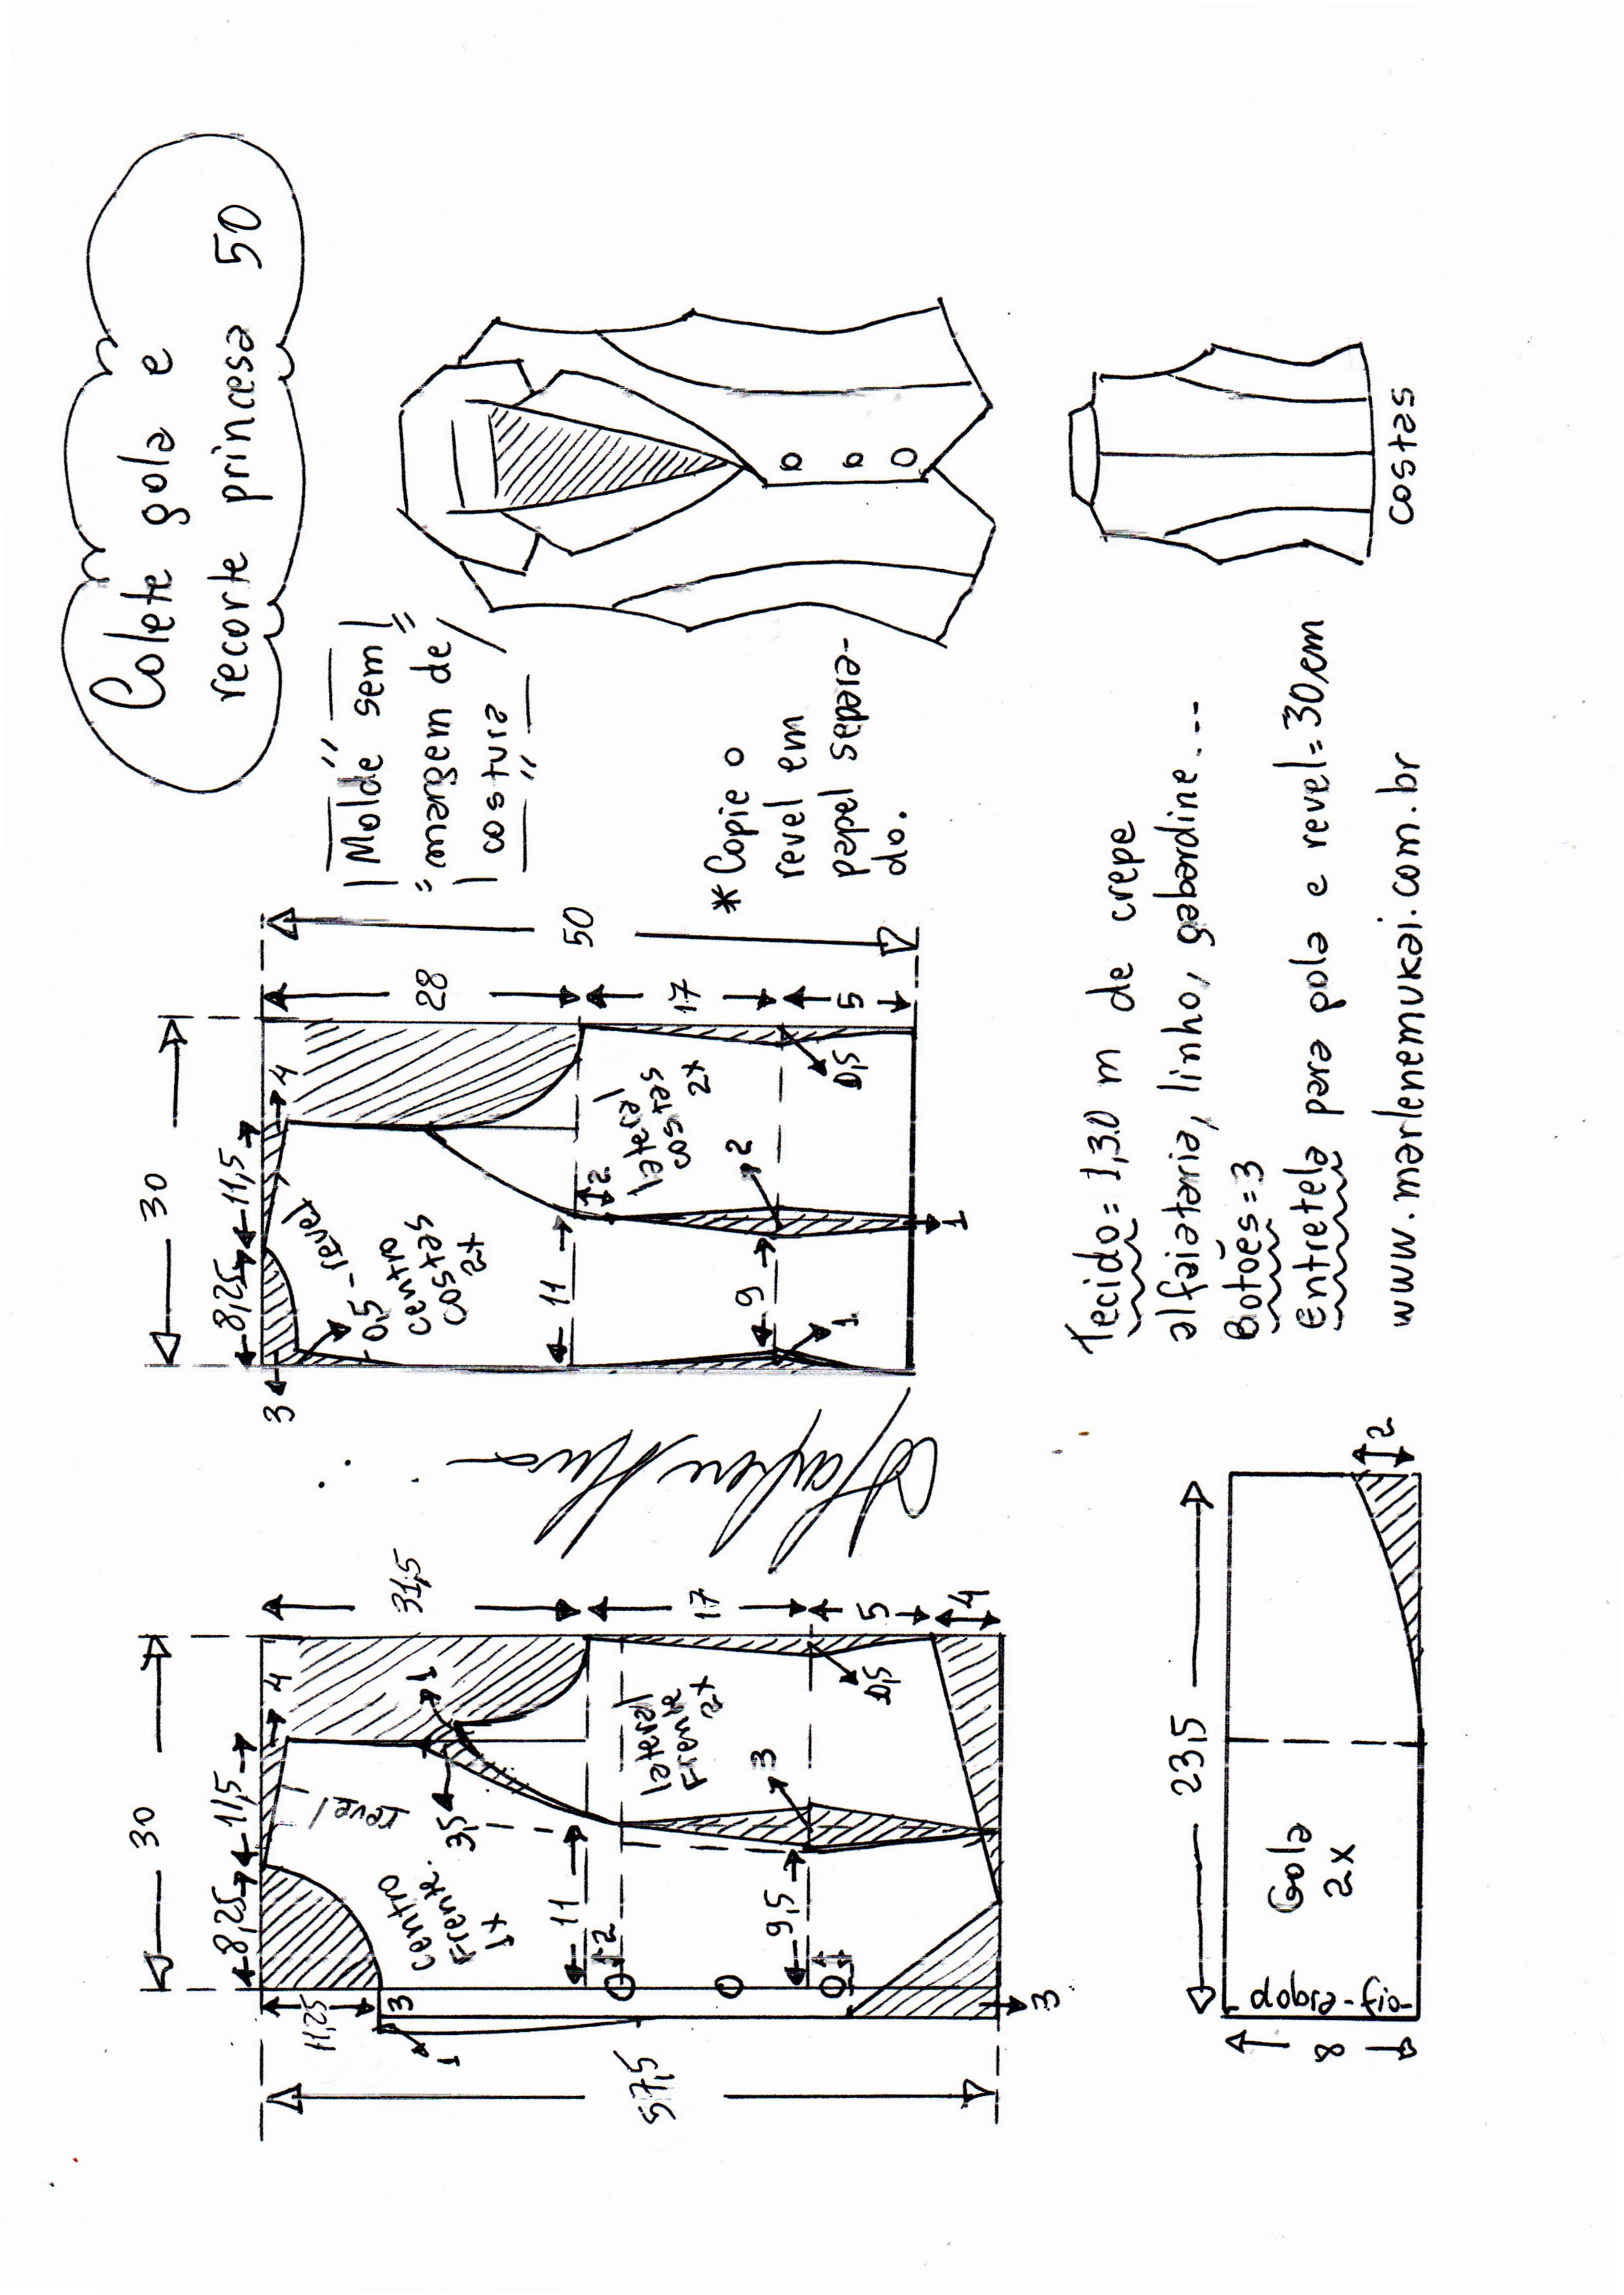 Colete gola e
recorte princesa 50
Molde sem
margem de
costura
* Copie o
revel em
papel separa-
do.
30
8,25
11,5
4
11,25
3
1
revel
3,5
1
centro
Frente
1x
11
2
lateral
Frente
2x
3
9,5
1
0,5
31,5
17
5
4
3
57,5
30
8,25
11,5
4
3
0,5
revel
centro
costas
2x
11
2
lateral
costas
2x
2
9
1
0,5
1
28
17
5
50
costas
23,5
Gola
2x
dobra-fio-
8
2
Tecido = 1,30 m de crepe
alfaiataria, linho, gabardine...
Botões = 3
Entretela para gola e revel = 30cm
www.marlenemukai.com.br